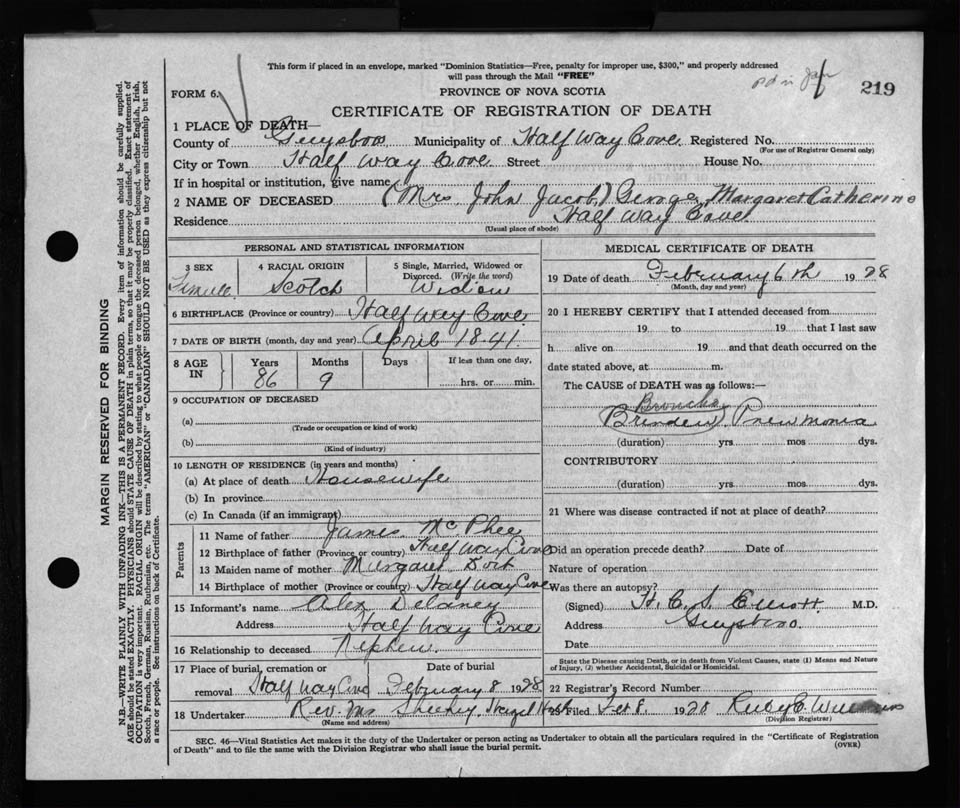 This form if placed in an envelope, marked "Dominion Statistics—Free, penalty for improper use, $300," and properly addressed
will pass through the Mail "FREE"
219
FORM 6.
PROVINCE OF NOVA SCOTIA
CERTIFICATE OF REGISTRATION OF DEATH
1 PLACE OF DEATH—
County of Guysboro Municipality of Half Way Cove Registered No.
(For use of Registrar General only)
City or Town Half Way Cove Street House No.
If in hospital or institution, give name
2 NAME OF DECEASED (Mrs. John Jacob) George, Margaret Catherine
Residence Half Way Cove
(Usual place of abode)
PERSONAL AND STATISTICAL INFORMATION
3 SEX 4 RACIAL ORIGIN 5 Single, Married, Widowed or
Divorced. (Write the word)
Female Scotch Widow
6 BIRTHPLACE (Province or country) Half Way Cove
7 DATE OF BIRTH (month, day and year) April 18.41.
8 AGE IN Years Months Days If less than one day,
86 9 hrs. or min.
9 OCCUPATION OF DECEASED
(a)
(Trade or occupation or kind of work)
(b)
(Kind of industry)
10 LENGTH OF RESIDENCE (in years and months)
(a) At place of death Housewife
(b) In province
(c) In Canada (if an immigrant)
Parents
11 Name of father James McPhee
12 Birthplace of father (Province or country) Half Way Cove
13 Maiden name of mother Margaret
14 Birthplace of mother (Province or country) Half Way Cove
15 Informant's name Alex Delaney
Address Half Way Cove
16 Relationship to deceased Nephew.
17 Place of burial, cremation or Date of burial
removal Half Way Cove February 8 1928
18 Undertaker Rev. Mr Sheehy,
(Name and address)
MEDICAL CERTIFICATE OF DEATH
19 Date of death February 6th 1928
(Month, day and year)
20 I HEREBY CERTIFY that I attended deceased from
19 to 19 that I last saw
h alive on 19 and that death occurred on the
date stated above, at m.
The CAUSE of DEATH was as follows:—
Broncho
Pneumonia
(duration) yrs. mos. dys.
CONTRIBUTORY
(duration) yrs. mos. dys.
21 Where was disease contracted if not at place of death?
Did an operation precede death? Date of
Nature of operation
Was there an autopsy?
(Signed) H. C. S. Elliott M.D.
Address Guysboro.
Date
State the Disease causing Death, or in death from Violent Causes, state (1) Means and Nature
of Injury, (2) whether Accidental, Suicidal or Homicidal.
22 Registrar's Record Number
23 Filed Feb 8. 1928 Ruby C.
(Division Registrar)
SEC. 46—Vital Statistics Act makes it the duty of the Undertaker or person acting as Undertaker to obtain all the particulars required in the "Certificate of Registration
of Death" and to file the same with the Division Registrar who shall issue the burial permit.
(OVER)
MARGIN RESERVED FOR BINDING
N.B.—WRITE PLAINLY WITH UNFADING INK—THIS IS A PERMANENT RECORD. Every item of information should be carefully supplied.
AGE should be stated EXACTLY. PHYSICIANS should STATE CAUSE OF DEATH in plain terms, so that it may be properly classified. Exact statement of
OCCUPATION is very important. RACIAL ORIGIN will be described by stating to what people or tongue the deceased person belonged, whether English, Irish,
Scotch, French, German, Russian, Ruthenian, etc. The terms "AMERICAN" or "CANADIAN" SHOULD NOT BE USED as they express citizenship but not
a race or people. See instructions on back of Certificate.